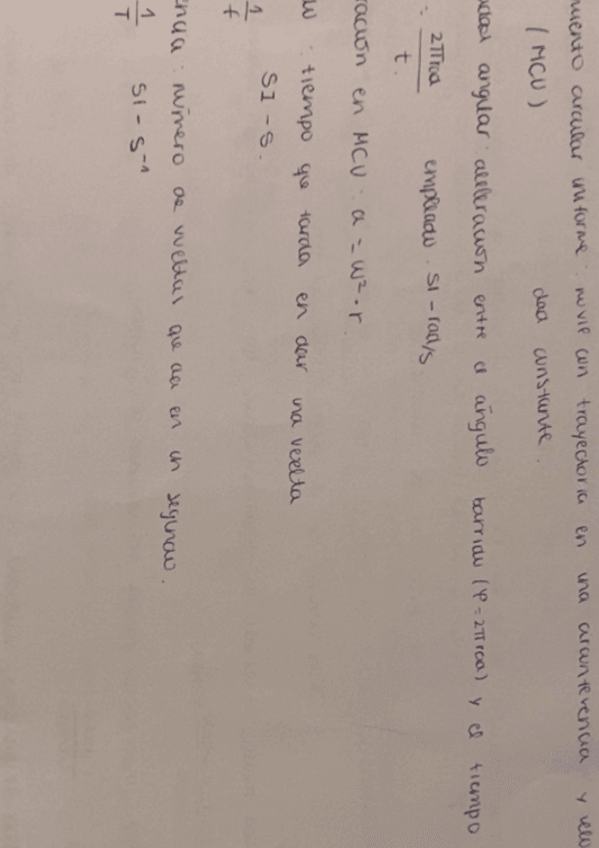 miento circular uniforme: móvil con trayectoria en una circunferencia y velo
(MCU) dad constante.
idad angular: aceleración entre el ángulo barrido (φ=2πrad) y el tiempo
: 2πrad / t. empleado. SI - rad/s
ración en MCU: a = w² · r.
w: tiempo que tarda en dar una vuelta
1/f SI - s.
encia: número de vueltas que da en un segundo.
1/T SI - s⁻¹